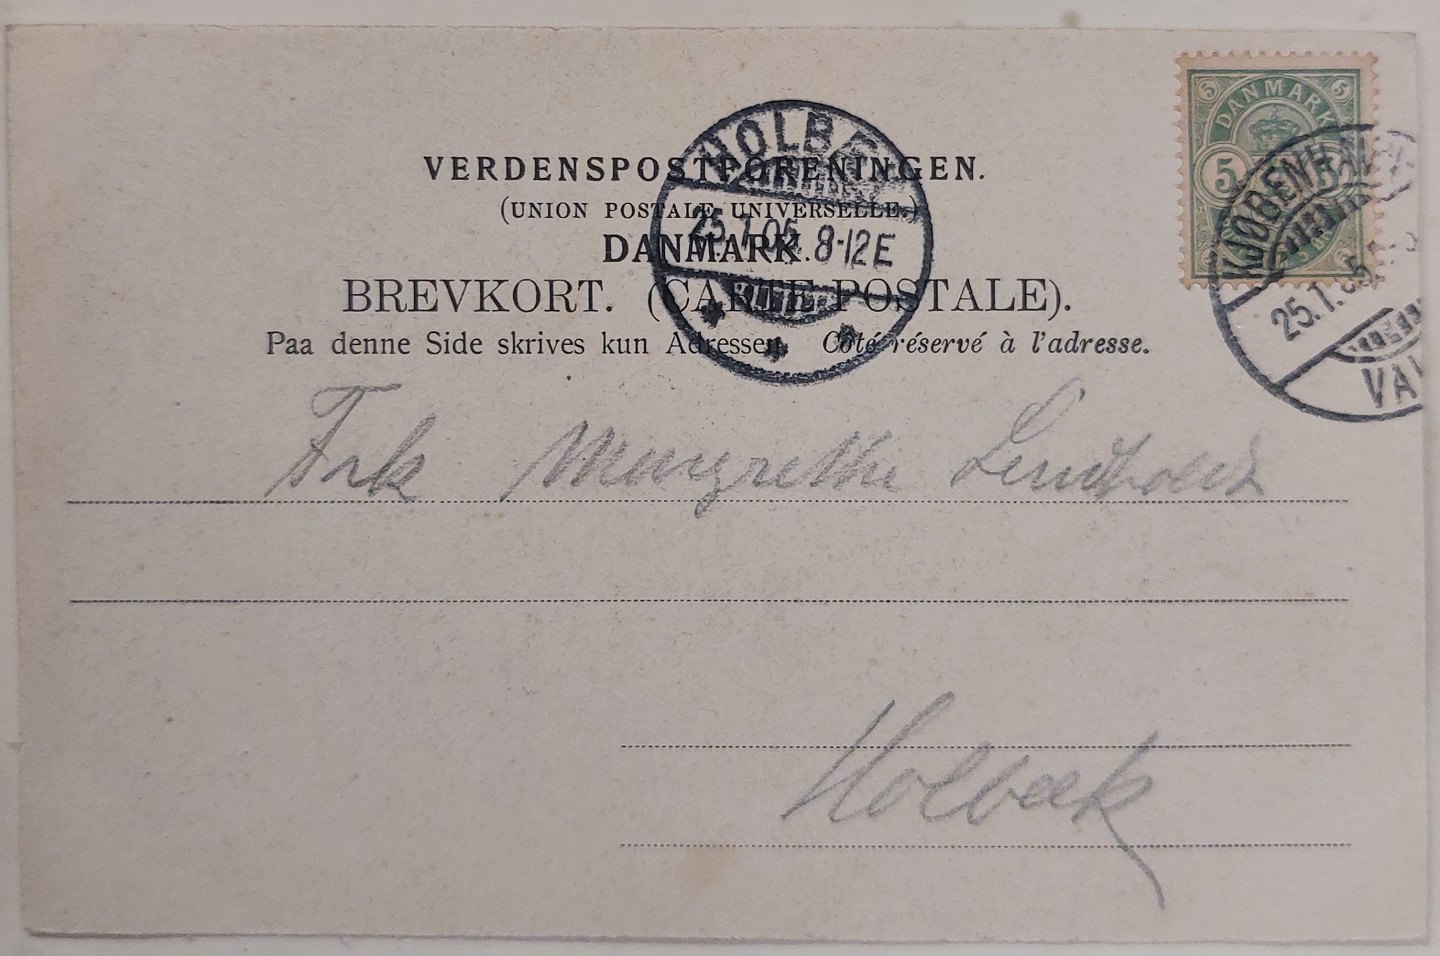 VERDENSPOSTFORENINGEN.
(UNION POSTALE UNIVERSELLE.)
DANMARK.
BREVKORT. (CARTE POSTALE).
Paa denne Side skrives kun Adressen. Côté réservé à l'adresse.
HOLBÆ
25.1.05. 8-12E
DANMARK
5
KJØBENHAVN
25.1.05
VAL
Frk Margrethe Lindholdt
Holbæk